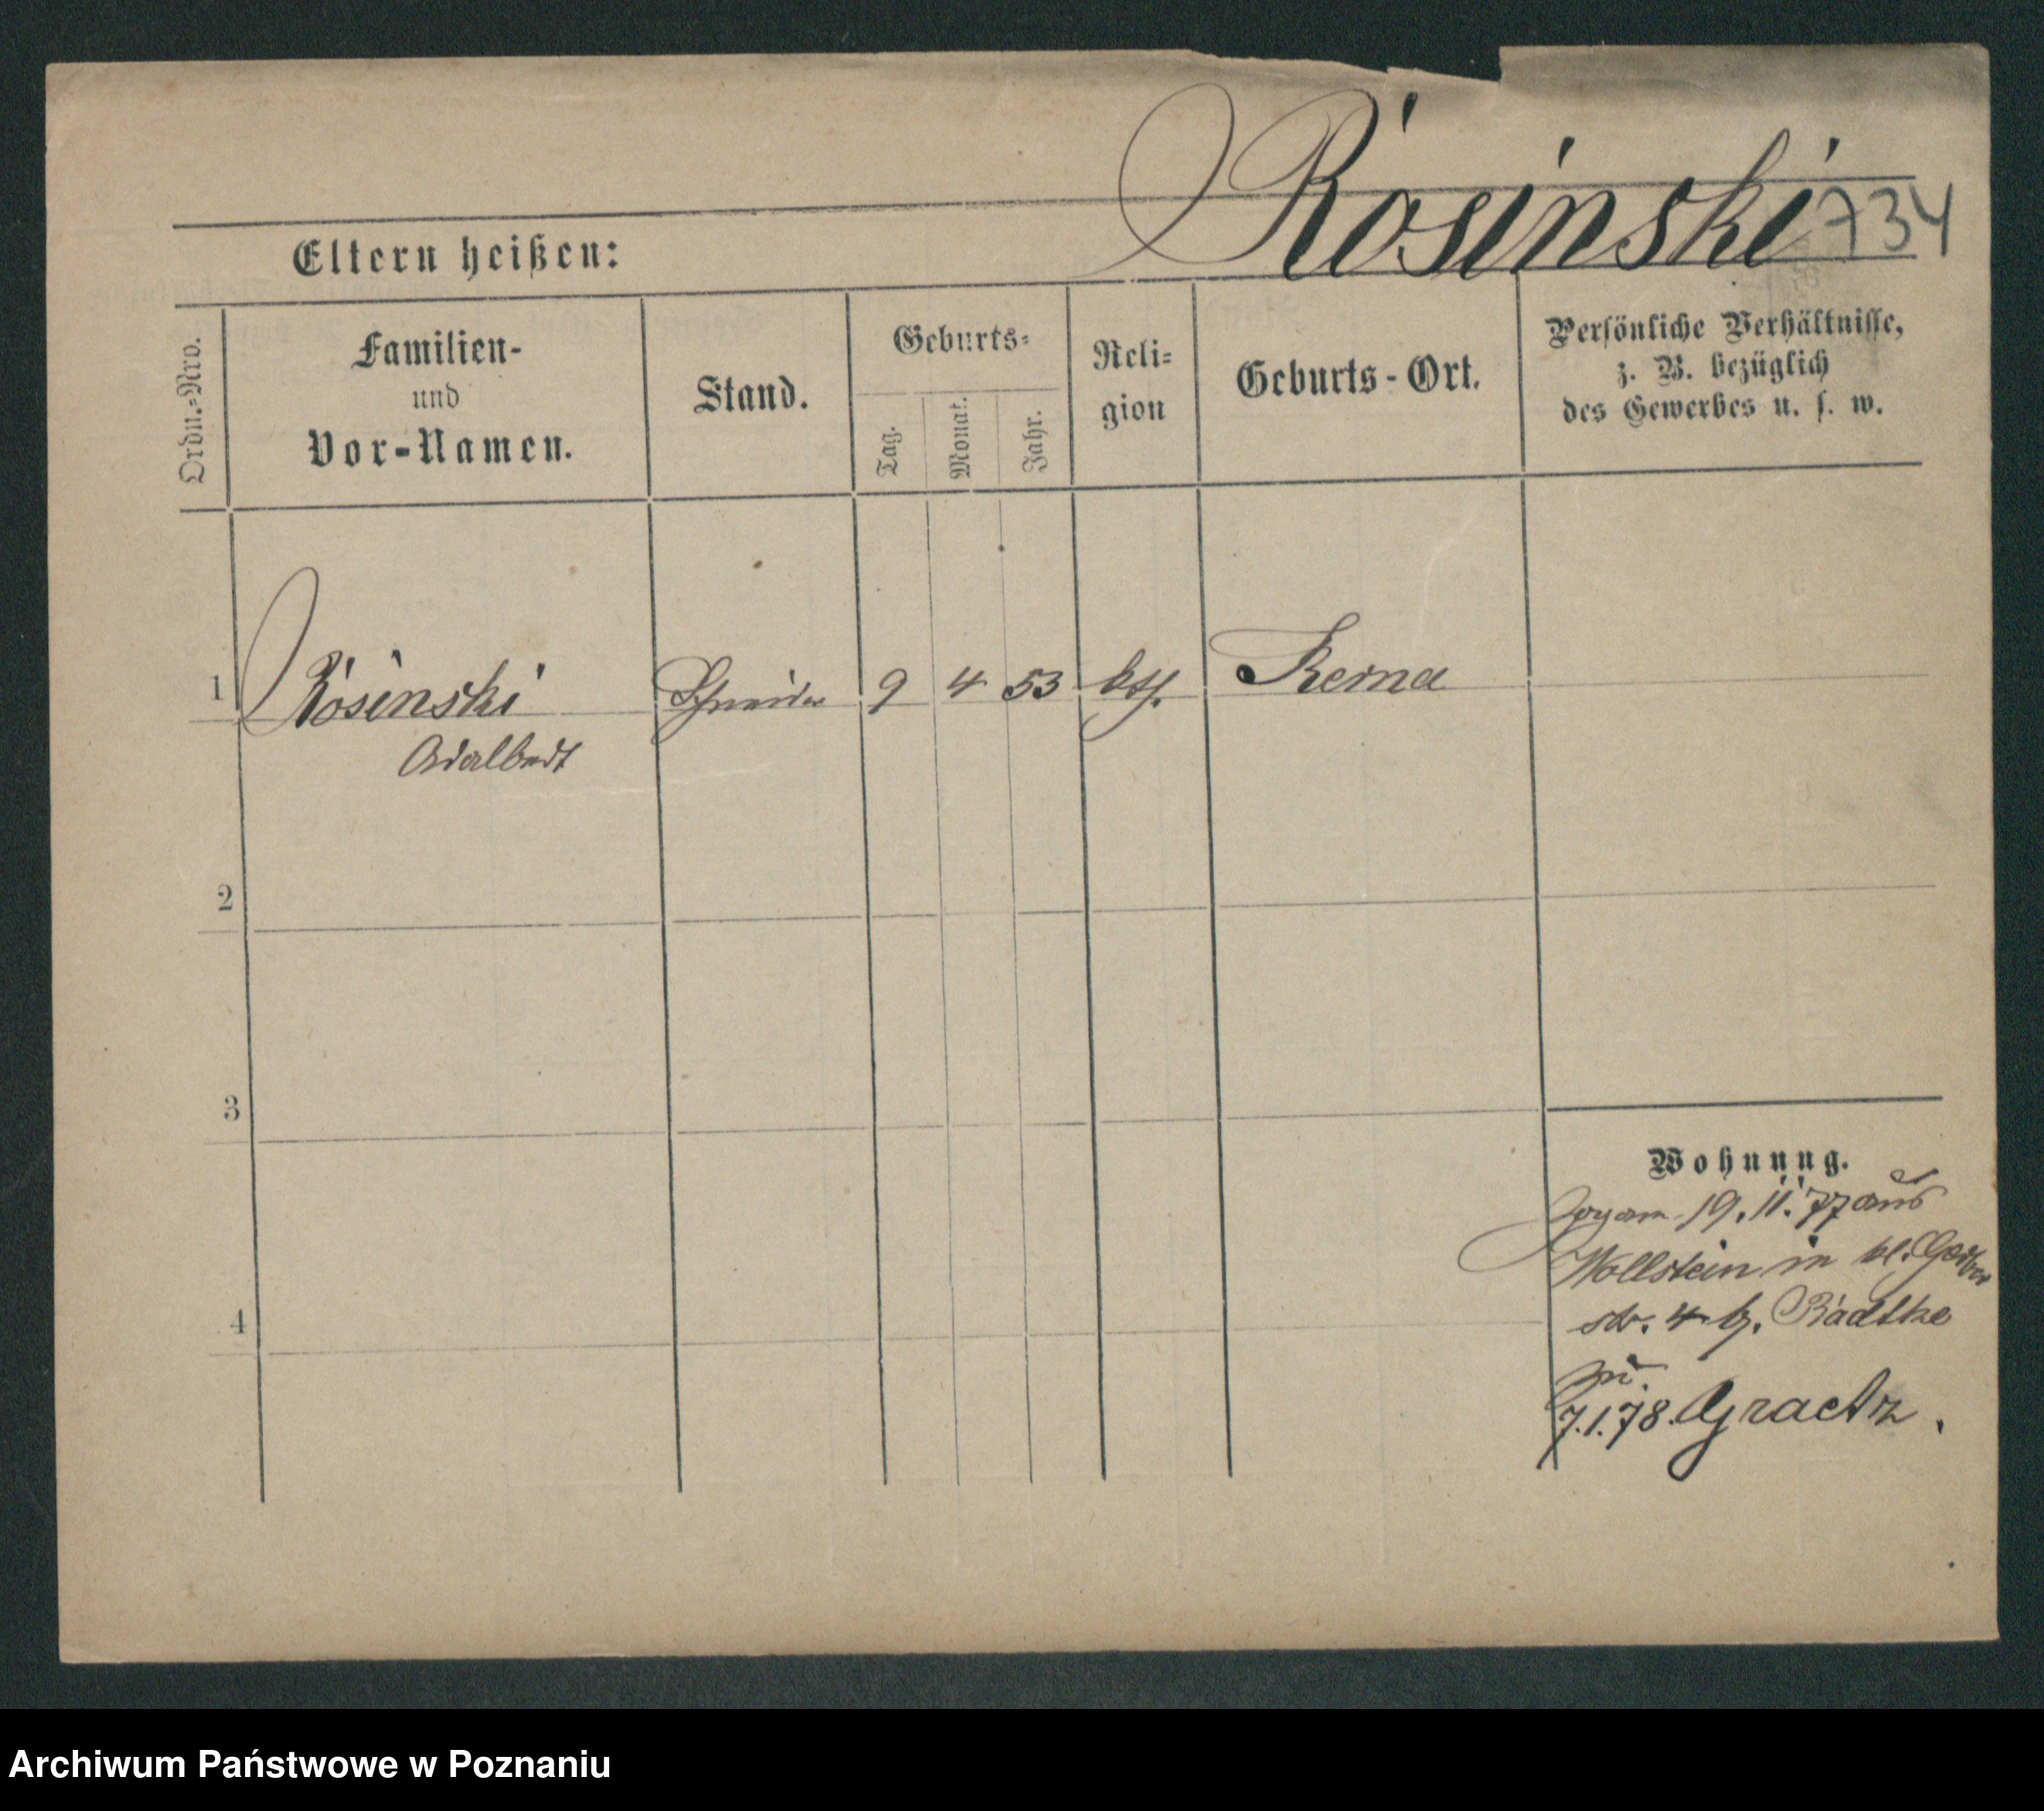 Rósinski 734
Eltern heißen:
Ordn.-Nro.
Familien-
und
Vor-Namen.
Stand.
Geburts-
Tag.
Monat.
Jahr.
Reli-
gion
Geburts-Ort.
Persönliche Verhältnisse,
z. B. bezüglich
des Gewerbes u. s. w.
1 Rósinski Schneider 9 4 53 kth.
Adalbert
2
3
4
Wohnung.
19. 11. 77 aus
Wollstein in kl. Gerber
str. 4 b. Radtke
7.1.78. Graetz.
Archiwum Państwowe w Poznaniu